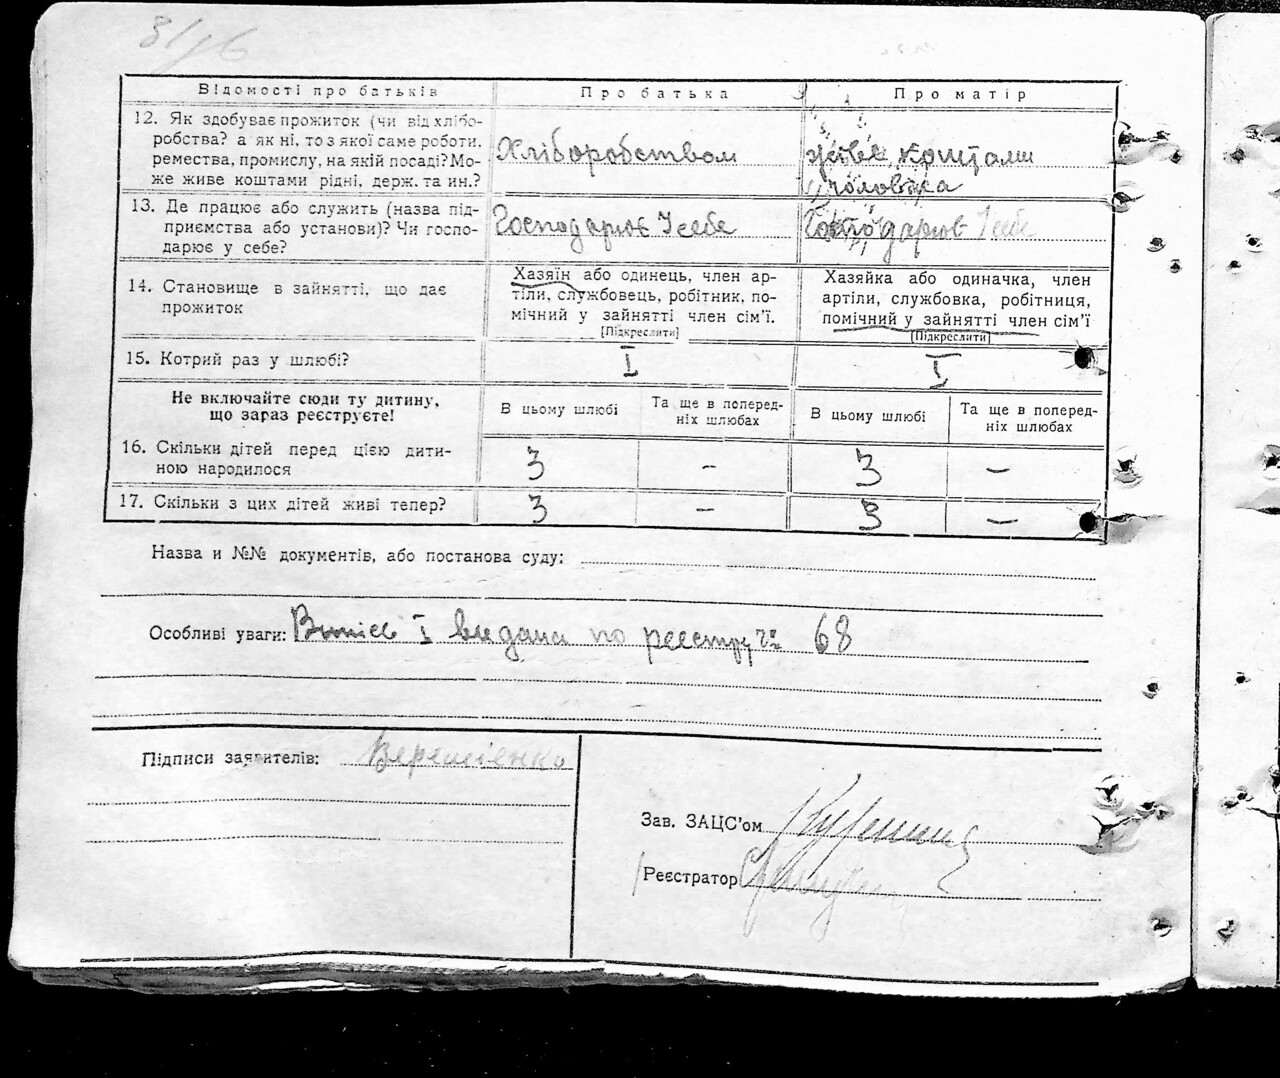 Відомості про батьків Про батька Про матір
12. Як здобуває прожиток (чи від хлібо-
робства? а як ні, то з якої саме роботи.
ремества, промислу, на якій посаді? Мо-
же живе коштами рідні, держ. та ин.?
Хліборобством
коштами
чоловіка
13. Де працює або служить (назва під-
приємства або установи)? Чи госпо-
дарює у себе?
Господарює У себе
Господарює У себе
14. Становище в зайнятті, що дає
прожиток
Хазяїн або одинець, член ар-
тіли, службовець, робітник, по-
мічний у зайнятті член сім'ї.
[Підкреслити]
Хазяйка або одиначка, член
артіли, службовка, робітниця,
помічний у зайнятті член сім'ї
[Підкреслити]
15. Котрий раз у шлюбі? I I
Не включайте сюди ту дитину,
що зараз реєструєте!
В цьому шлюбі
Та ще в поперед-
ніх шлюбах
В цьому шлюбі
Та ще в поперед-
ніх шлюбах
16. Скільки дітей перед цією дити-
ною народилося
3 – 3 –
17. Скільки з цих дітей живі тепер? 3 – 3 –
Назва и №№ документів, або постанова суду:
Особливі уваги: I видана по реєстру № 68
Підписи заявителів: Веремієнко
Зав. ЗАЦС'ом
Реєстратор